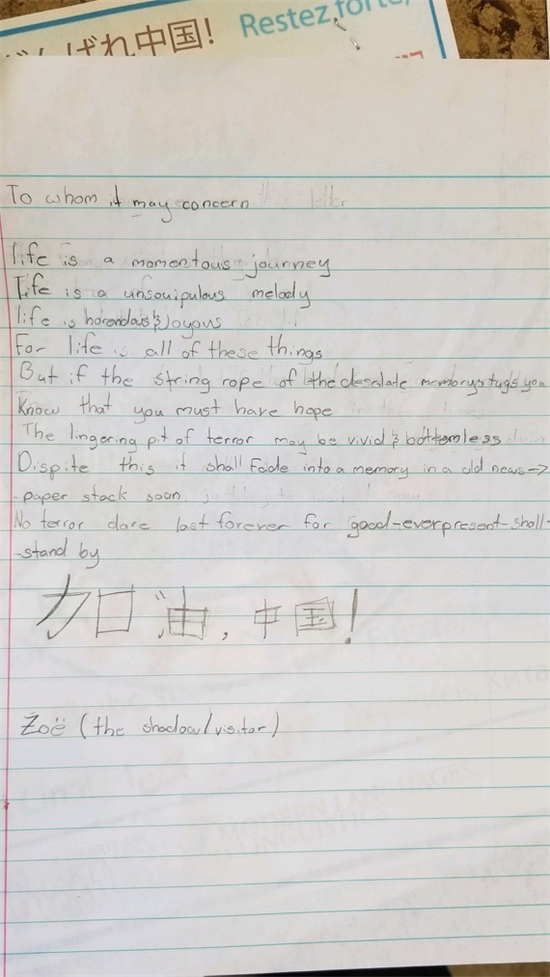 んばれ中国!
Restez forte,
To whom it may concern
life is a momentous journey
Life is a unsouipulous melody
life is horendous & Joyous
For life is all of these things
But if the string rope of the desolate memorys tugs you
Know that you must have hope
The lingering pit of terror may be vivid & bottomless
Dispite this it shall Fade into a memory in a old news→
-paper stack soon.
No terror dare last forever for good-everpresent-shall-
-stand by
加油,中国!
Zoë (the shadow/visitor)